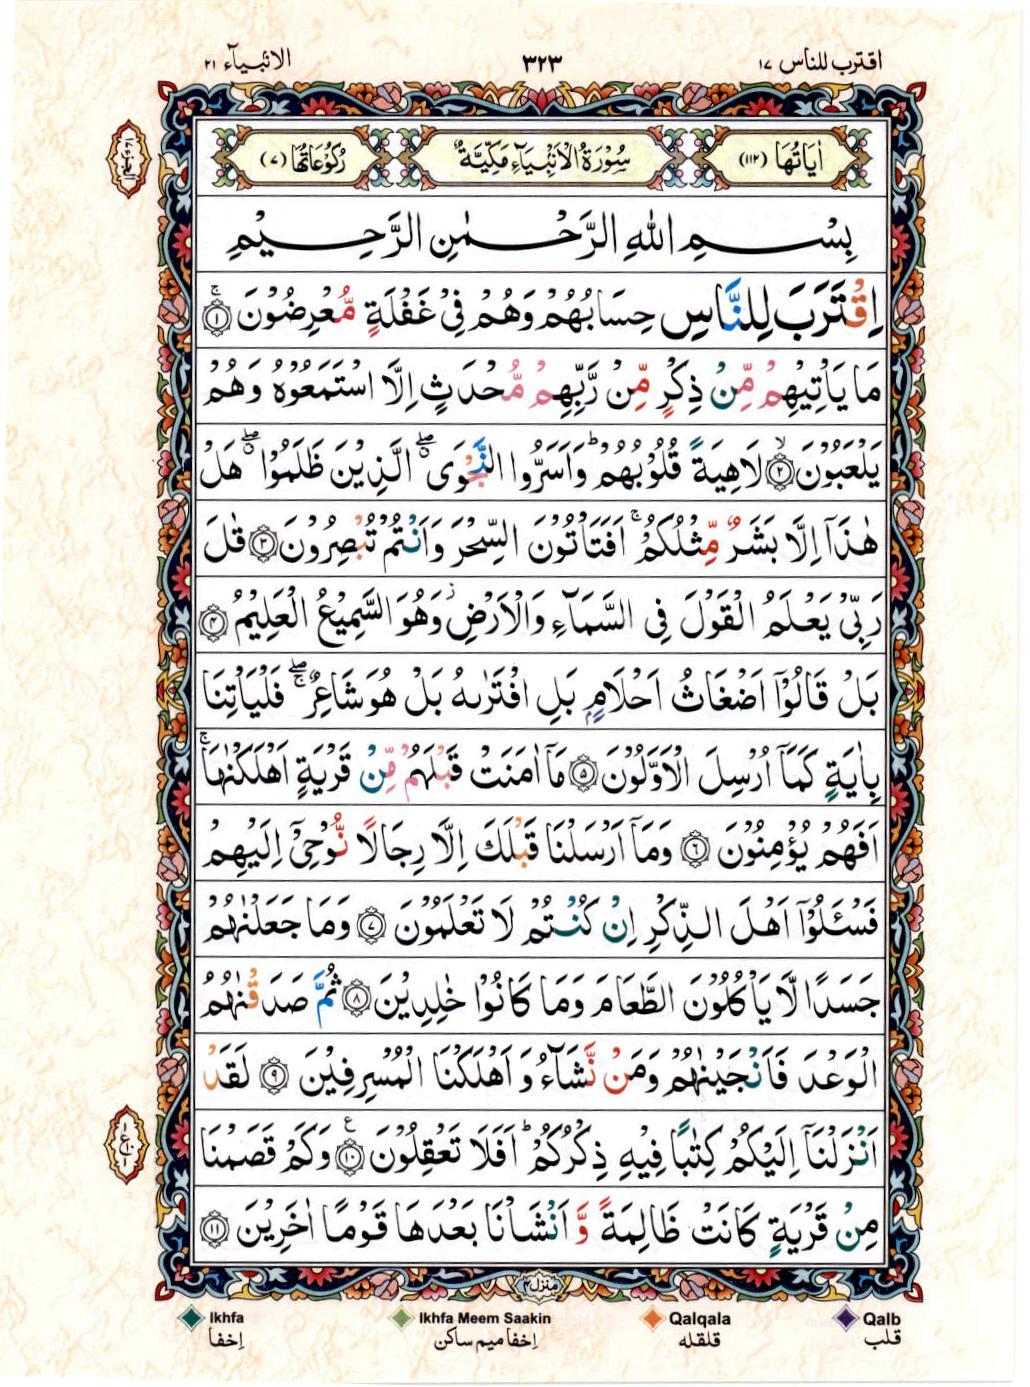 اقترب للناس ۱۷ ۳۲۳ الانبیآء ۲۱
اٰیَاتُهَا (۱۱۲) سُوْرَةُ الْاَنْۢبِیَآءِ مَكِّیَّةٌ رُكُوْعَاتُهَا (۷)
الجزء ۱۷
بِسْمِ اللهِ الرَّحْمٰنِ الرَّحِیْمِ
اِقْتَرَبَ لِلنَّاسِ حِسَابُهُمْ وَهُمْ فِیْ غَفْلَةٍ مُّعْرِضُوْنَ ۚ﴿۱﴾
مَا یَاْتِیْهِمْ مِّنْ ذِكْرٍ مِّنْ رَّبِّهِمْ مُّحْدَثٍ اِلَّا اسْتَمَعُوْهُ وَهُمْ
یَلْعَبُوْنَ ۙ﴿۲﴾ لَاهِیَةً قُلُوْبُهُمْ ؕ وَاَسَرُّوا النَّجْوَی ۖۗ الَّذِیْنَ ظَلَمُوْا ۖۗ هَلْ
هٰذَاۤ اِلَّا بَشَرٌ مِّثْلُكُمْ ۚ اَفَتَاْتُوْنَ السِّحْرَ وَاَنْتُمْ تُبْصِرُوْنَ ﴿۳﴾ قٰلَ
رَبِّیْ یَعْلَمُ الْقَوْلَ فِی السَّمَآءِ وَالْاَرْضِ ؗ وَهُوَ السَّمِیْعُ الْعَلِیْمُ ﴿۴﴾
بَلْ قَالُوْۤا اَضْغَاثُ اَحْلَامٍۭ بَلِ افْتَرٰىهُ بَلْ هُوَ شَاعِرٌ ۖۚ فَلْیَاْتِنَا
بِاٰیَةٍ كَمَاۤ اُرْسِلَ الْاَوَّلُوْنَ ﴿۵﴾ مَاۤ اٰمَنَتْ قَبْلَهُمْ مِّنْ قَرْیَةٍ اَهْلَكْنٰهَا ۚ
اَفَهُمْ یُؤْمِنُوْنَ ﴿۶﴾ وَمَاۤ اَرْسَلْنَا قَبْلَكَ اِلَّا رِجَالًا نُّوْحِیْۤ اِلَیْهِمْ
فَسْـَٔلُوْۤا اَهْلَ الذِّكْرِ اِنْ كُنْتُمْ لَا تَعْلَمُوْنَ ﴿۷﴾ وَمَا جَعَلْنٰهُمْ
جَسَدًا لَّا یَاْكُلُوْنَ الطَّعَامَ وَمَا كَانُوْا خٰلِدِیْنَ ﴿۸﴾ ثُمَّ صَدَقْنٰهُمُ
الْوَعْدَ فَاَنْجَیْنٰهُمْ وَمَنْ نَّشَآءُ وَاَهْلَكْنَا الْمُسْرِفِیْنَ ﴿۹﴾ لَقَدْ
اَنْزَلْنَاۤ اِلَیْكُمْ كِتٰبًا فِیْهِ ذِكْرُكُمْ ؕ اَفَلَا تَعْقِلُوْنَ ﴿۱۰﴾ ع وَكَمْ قَصَمْنَا
مِنْ قَرْیَةٍ كَانَتْ ظَالِمَةً وَّاَنْشَاْنَا بَعْدَهَا قَوْمًا اٰخَرِیْنَ ﴿۱۱﴾
منزل ۴
Ikhfa Ikhfa Meem Saakin Qalqala Qalb
إخفا إخفا میم ساکن قلقله قلب